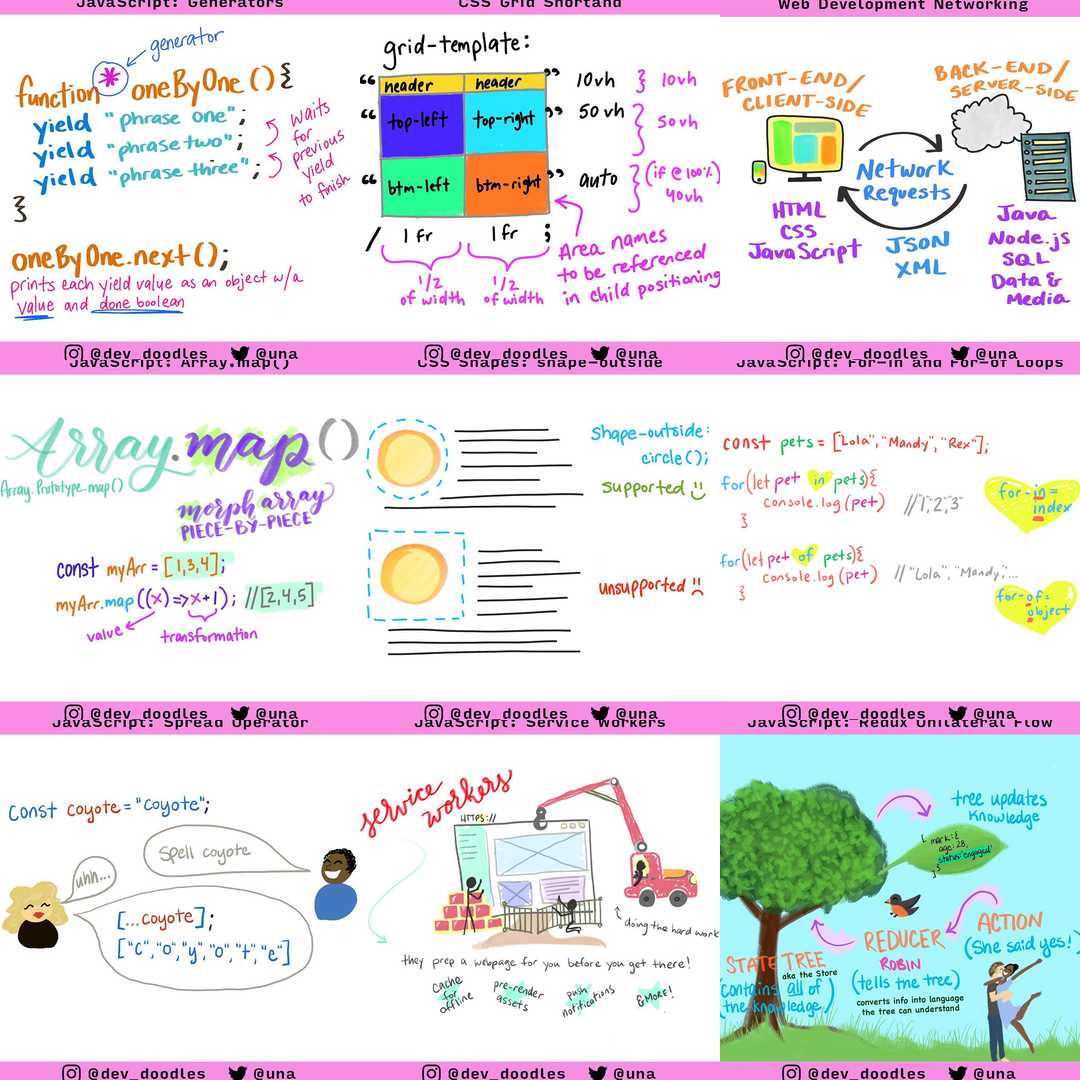 JavaScript: Generators
generator
function * oneByOne () {
yield "phrase one";
yield "phrase two";
yield "phrase three";
}
waits
for
previous
yield
to finish
oneByOne.next();
prints each yield value as an object w/a
value and done boolean
CSS Grid Shortand
grid-template:
" header header " 10vh } 10vh
top-left top-right 50vh } 50vh
" btm-left btm-right " auto } (if @ 100%)
40vh
/ 1 fr 1 fr ;
1/2 1/2
of width of width
Area names
to be referenced
in child positioning
Web Development Networking
FRONT-END/
CLIENT-SIDE
BACK-END/
SERVER-SIDE
Network
Requests
HTML
CSS
JavaScript
JSON
XML
Java
Node.js
SQL
Data &
Media
@dev_doodles @una
@dev_doodles @una
@dev_doodles @una
JavaScript: Array.map()
Array.map()
Array.Prototype.map()
morph array
PIECE-BY-PIECE
const myArr = [1,3,4];
myArr.map((x)=>x+1); //[2,4,5]
value
transformation
CSS Shapes: Shape-outside
Shape-outside:
circle();
supported
unsupported
JavaScript: For-in and For-of Loops
const pets = ["Lola","Mandy","Rex"];
for(let pet in pets){
console.log(pet) //"1,2,3"
}
for-in =
index
for(let pet of pets){
console.log(pet) //"Lola","Mandy",...
}
for-of =
object
@dev_doodles @una
@dev_doodles @una
@dev_doodles @una
JavaScript: Spread Operator
const coyote = "Coyote";
Spell coyote
uhh...
[...coyote];
["C","o","y","o","t","e"]
JavaScript: Service Workers
service
workers
HTTPS://
doing the hard work
they prep a webpage for you before you get there!
Cache
for
offline
pre-render
assets
push
notifications
& MORE!
JavaScript: Redux Unilateral Flow
tree updates
knowledge
{ mark: {
age: 28,
status: 'engaged'
} }
ACTION
(She said yes!)
REDUCER
ROBIN
(tells the tree)
converts info into language
the tree can understand
STATE TREE
aka the Store
(contains all of
the knowledge)
@dev_doodles @una
@dev_doodles @una
@dev_doodles @una